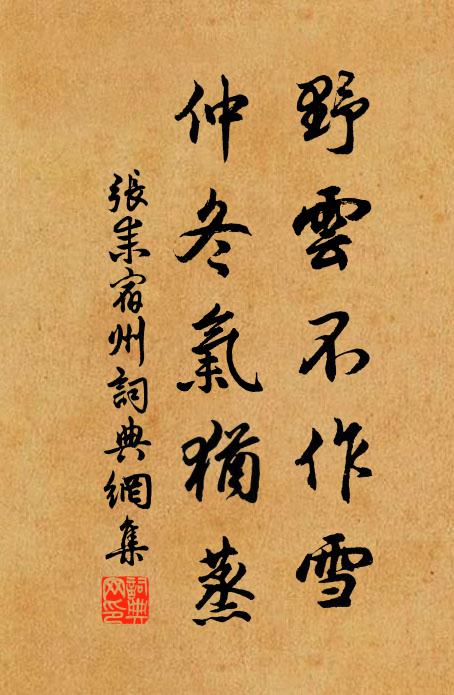 野雲不作雪
仲冬氣猶蒸
張耒宿州詞典網集
詞典网印